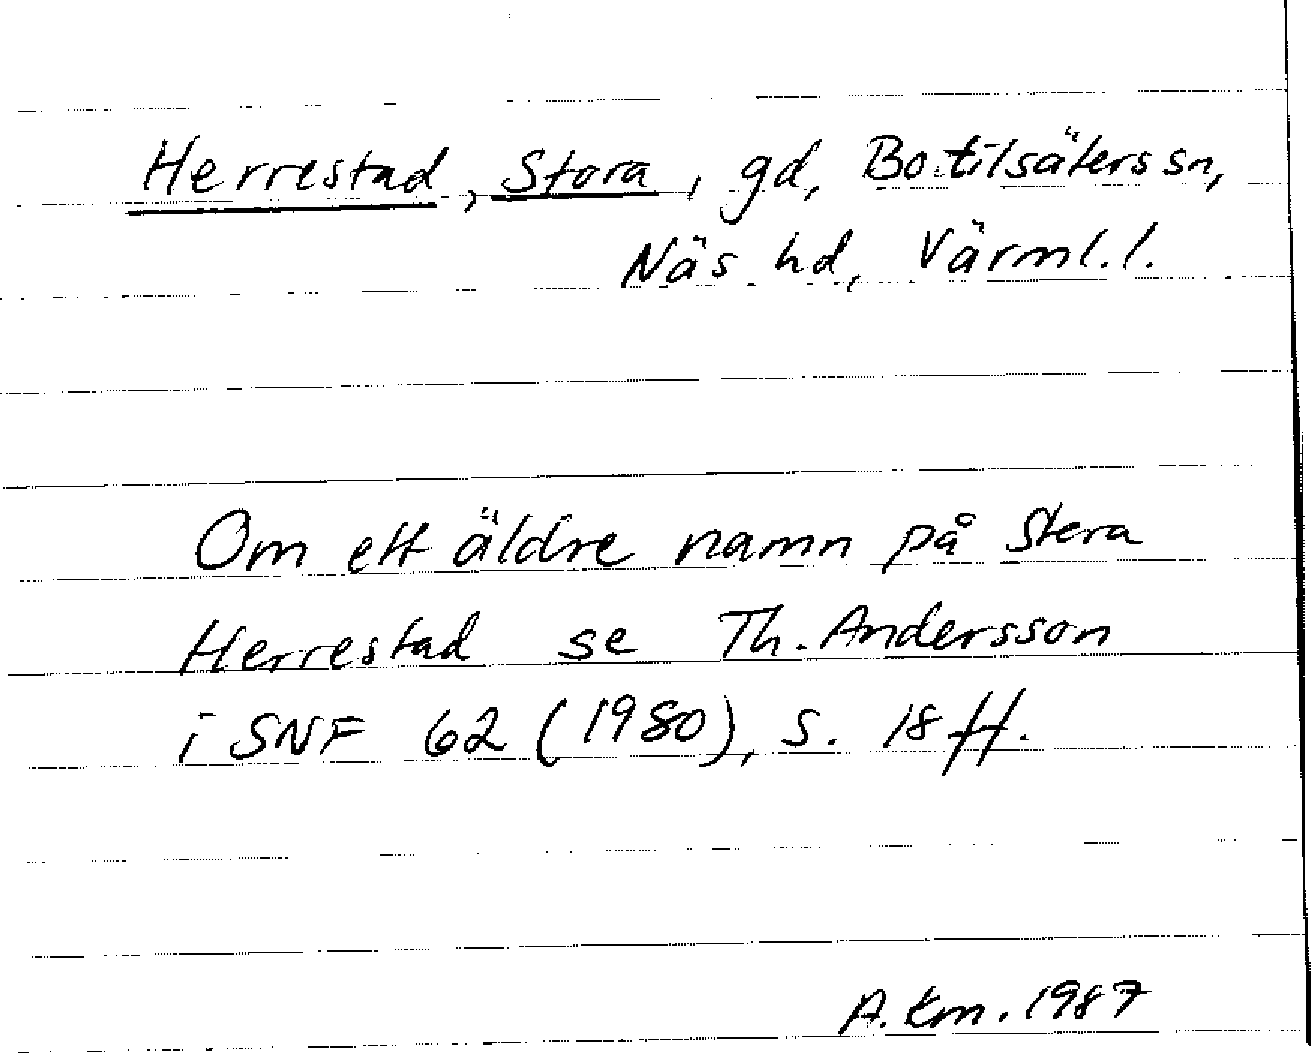 Herrestad, Stora, gd, Botilsäters sn,
Näs hd, Värml. l.
Om ett äldre namn på Stora
Herrestad se Th. Andersson
i SNF 62 (1980), s. 18 ff.
A. Km. 1987